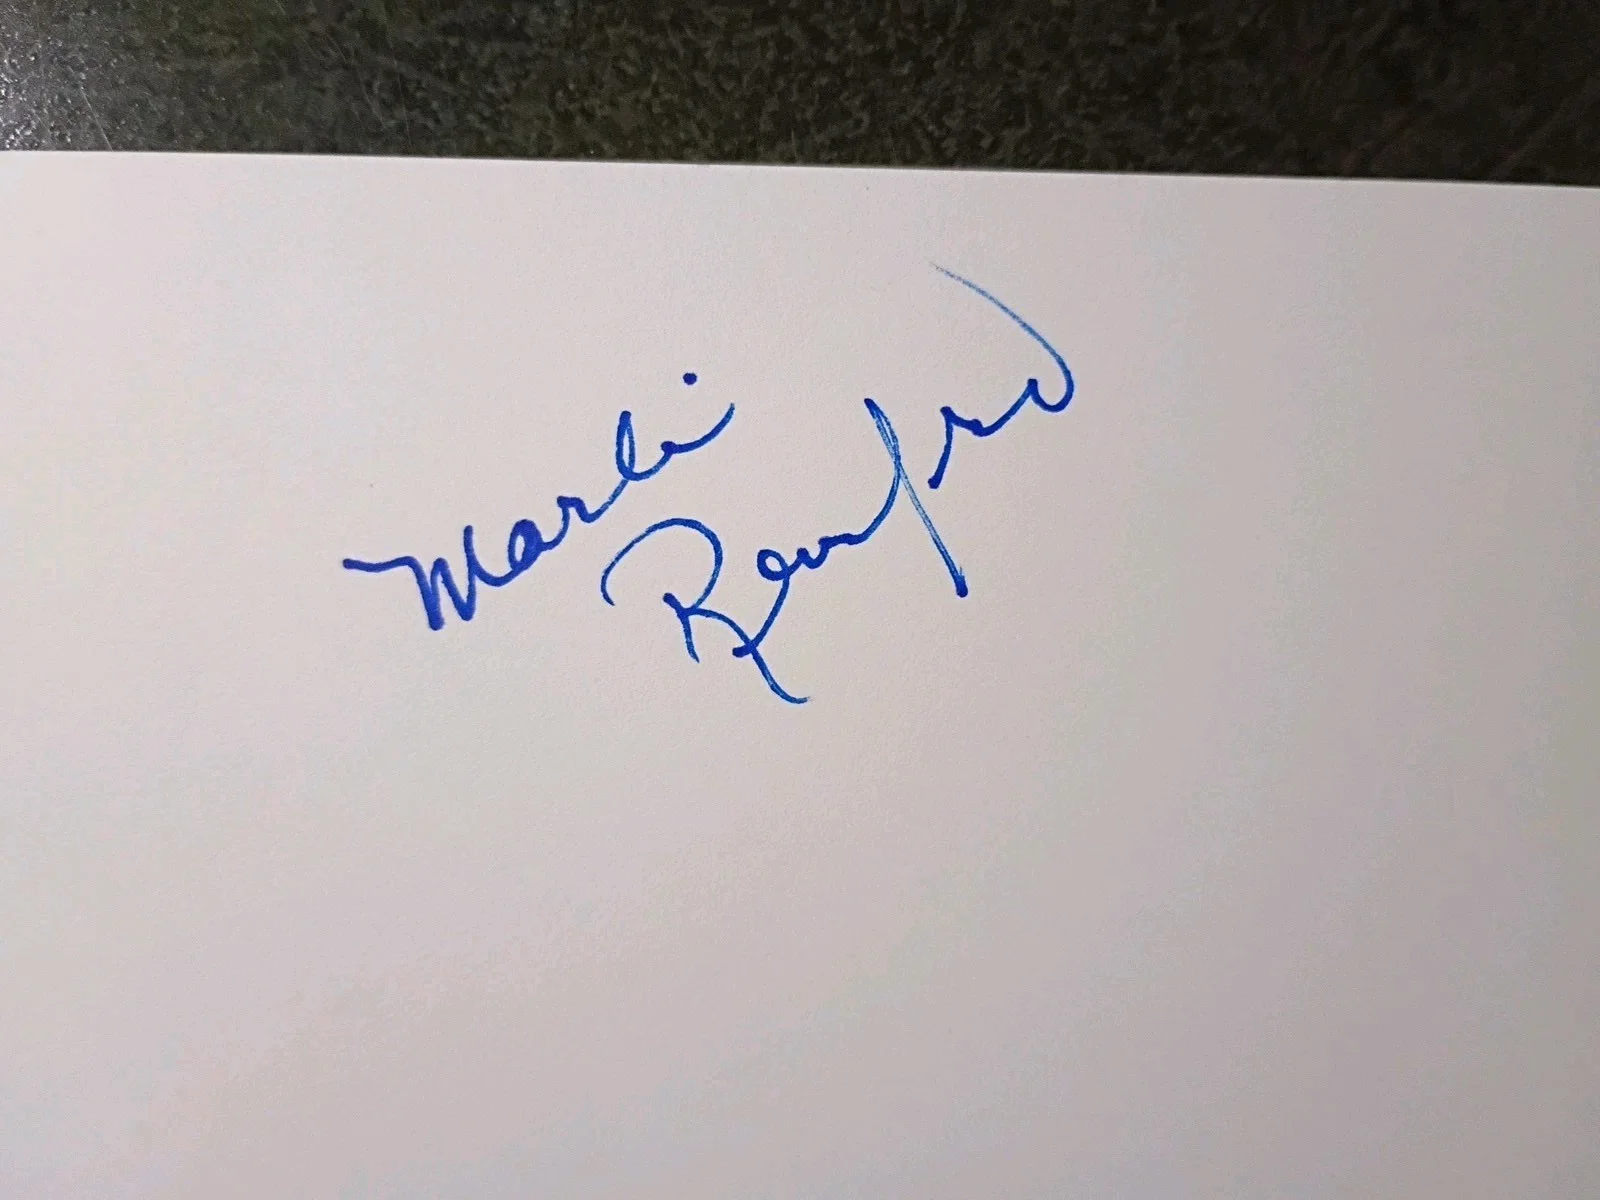 Marli
Renfro